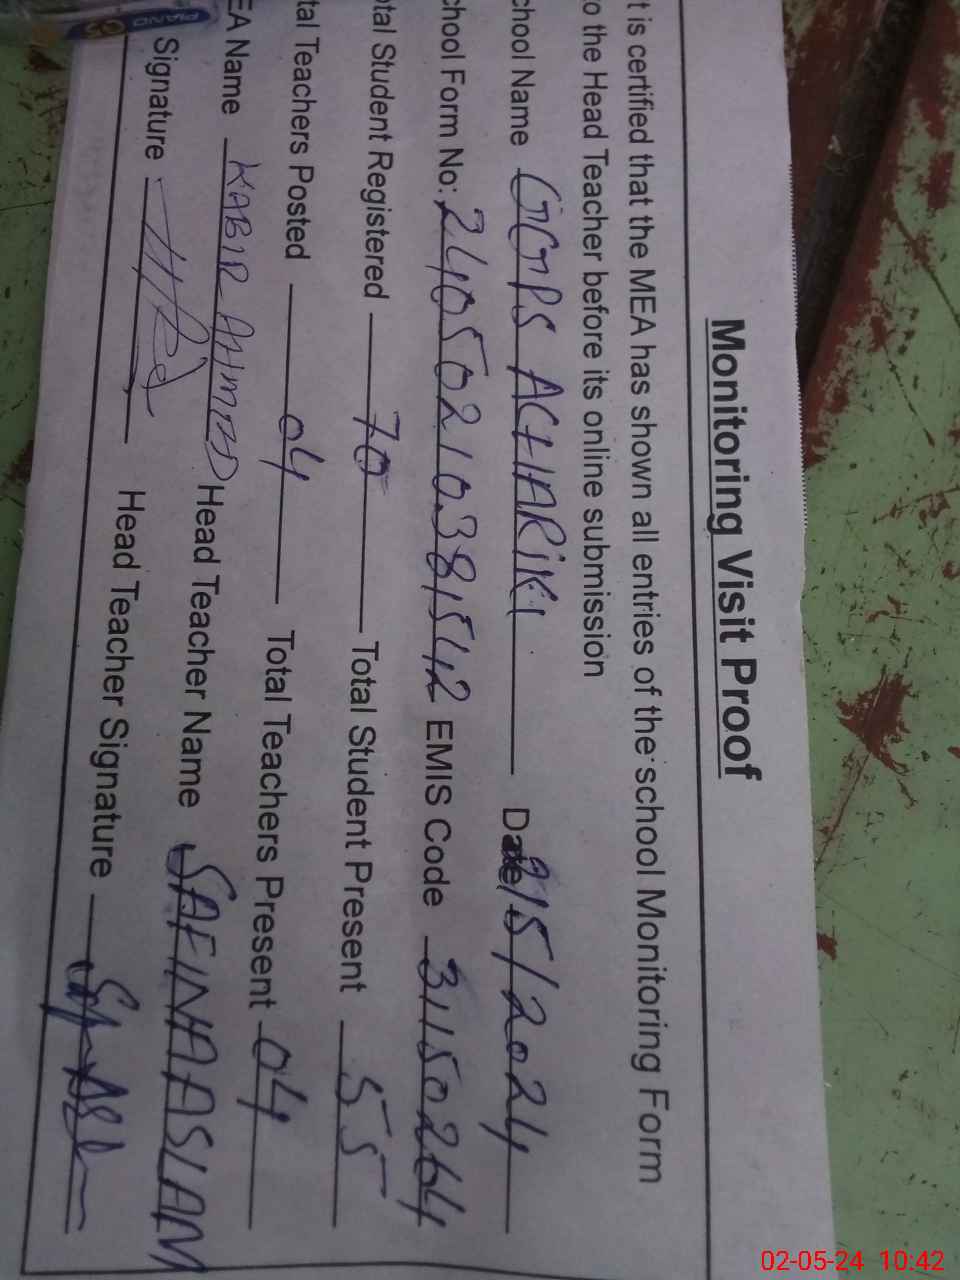 Monitoring Visit Proof
t is certified that the MEA has shown all entries of the school Monitoring Form
o the Head Teacher before its online submission
chool Name GGPS ACHARiKi Date 2/5/2024
chool Form No: 24050210381542 EMIS Code 31150264
otal Student Registered 70 Total Student Present 55
tal Teachers Posted 04 Total Teachers Present 04
EA Name KABIR AHMAD Head Teacher Name SAFINA ASLAM
Signature Head Teacher Signature
PIANO
02-05-24 10:42